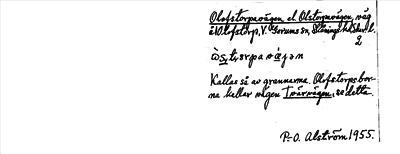 Olofstorpavägen, el. Olstorpavägen, väg
i Olofstorp, V. Gerums sn,
2
Kallas så av grannarna. Olofstorps bor-
na kallar vägen Tvärvägen, se detta.
P.-O. Alström 1955.